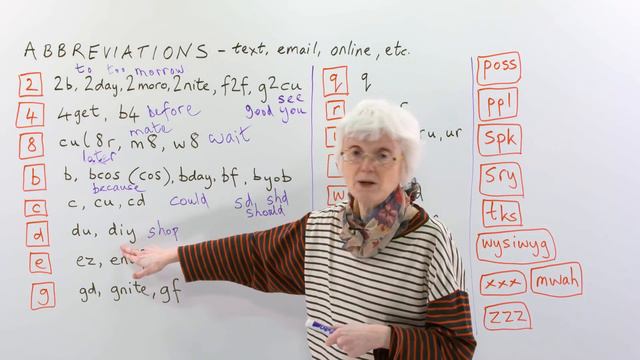 ABBREVIATIONS - text, email, online, etc.
to too morrow
2 2b, 2day, 2moro, 2nite, f2f, g2cu
see
4 4get, b4 before good you
mate
8 cul8r, m8, w8 wait
later
b b, bcos (cos), bday. bf, byob
because
c c, cu, cd could sd, shd
should
d du, diy shop
e ez,
g gd, gnite, gf
q q
ru, ur
poss
ppl
spk
sry
tks
wysiwyg
xxx mwah
zzz